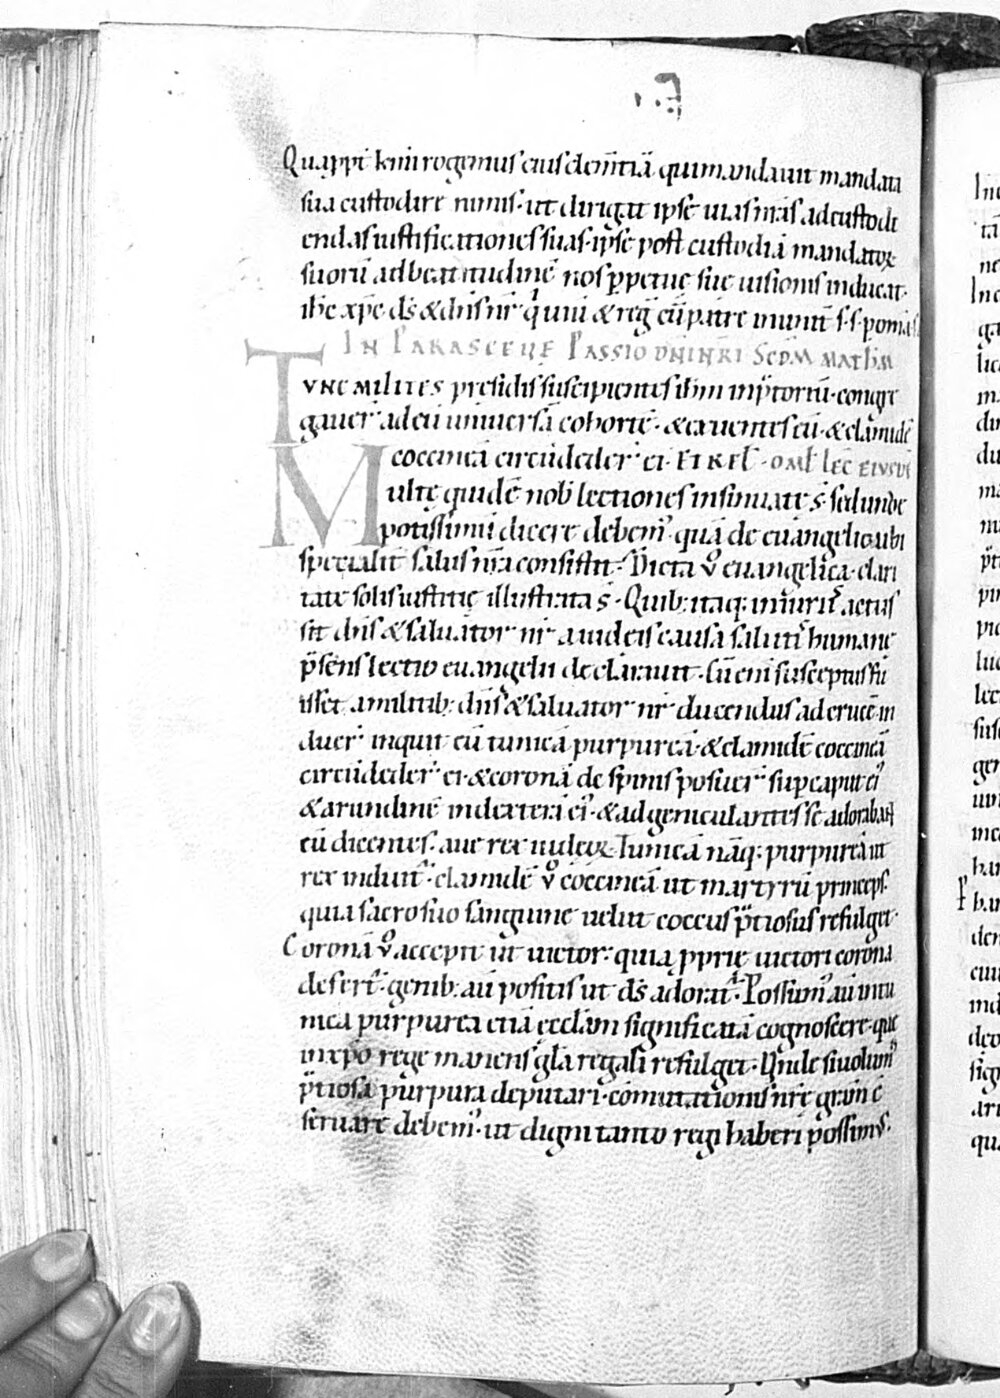 Quapp̄t kmi rogemus eius clem̄tiā qui mandauit mandata
sua custodire nimis· ut dirigat ipse uias n̄ras ad custodi
endas iustificationes suas· ipse post custodiā mandatoꝝ
suorū ad beatitudinē nos ꝑpetue sue uisionis inducat·
ih̄e xp̄e d̄s & dn̄s nr̄ q̇ uiui & reg̅ cū patre in unit̄ s· s· p om̄ia s
IN PARASCEUE PASSIO DN̄I NR̄I SCDM MATHM
TUNC MILITES presidis suscipientes ih̄m in p̄toriū· congre
gauer̄ ad eū uniuersā cohortē· & exuentes eū· & clamidē
coccineā circūdeder̄ ei· ET REL̄· OML̄ LEC̄ EIUSDĒ
Multe quidē nob̄ lectiones insinuate s̄· sed unde
potissimū dicere debem᷒· quā de euangelio· ubi
specialit̄ salus nr̄a consistit· Dicta v̊ euangelica· clari
tate solis iustitie illustrata s̄· Quib; itaq; iniuriis̄ actus
sit dn̄s & saluator nr̄ a iudeis causa salutis̄ humane
p̄sens lectio euangelii declarauit· Cū eni susceptus fu
isset a militib; dn̄s & saluator nr̄ ducendus ad crucē· in
duer̄ inquit eū tunicā purpureā· & clamidē coccineā
circūdeder̄ ei· & coronā de spinis posuer̄ sup caput ei᷒
& arundinē in dextera ei᷒· & adgeniculantes se adorabant
eū dicentes· aue rex iudeoꝝ· Tunicā nāq; purpureā ut
rex induit̄· clamidē v̊ coccineā ut martyrū princeps·
quia sacro suo sanguine uelut coccus p̄tiosus refulget·
Coronā v̊ accepit ut uictor· quia ꝓprie uictori corona
defert̄· genib; aū positis ut d̄s adorat̄· Possum᷒ aū in tu
nica purpurea etiā eccl̄am significatā cognoscere· que
in xp̄o rege manens gl̄a regali refulget· Unde si uolum᷒
p̄tiosa purpura deputari· cōmutationis nr̄e grām c̄
seruare debem᷒· ut digni tanto regi haberi possim᷒·